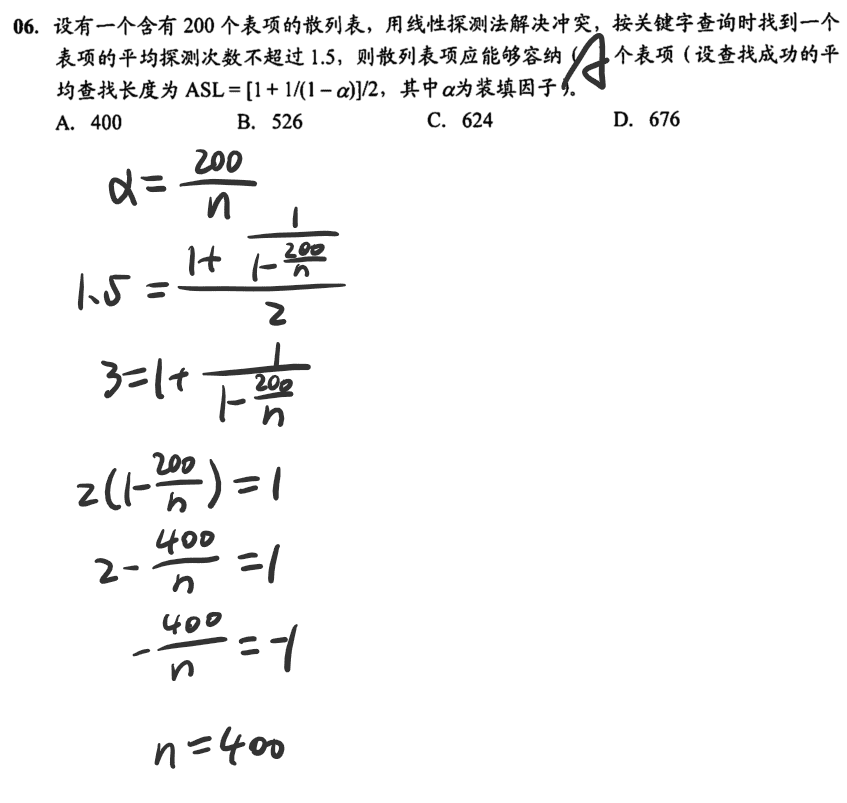 06. 设有一个含有 200 个表项的散列表，用线性探测法解决冲突，按关键字查询时找到一个
表项的平均探测次数不超过 1.5，则散列表项应能够容纳（ A ）个表项（设查找成功的平
均查找长度为 ASL = [1 + 1/(1 – α)]/2，其中 α 为装填因子）。
A. 400 B. 526 C. 624 D. 676
α = 200/n
1.5 = (1 + 1/(1 - 200/n))/2
3 = 1 + 1/(1 - 200/n)
2(1 - 200/n) = 1
2 - 400/n = 1
- 400/n = -1
n = 400